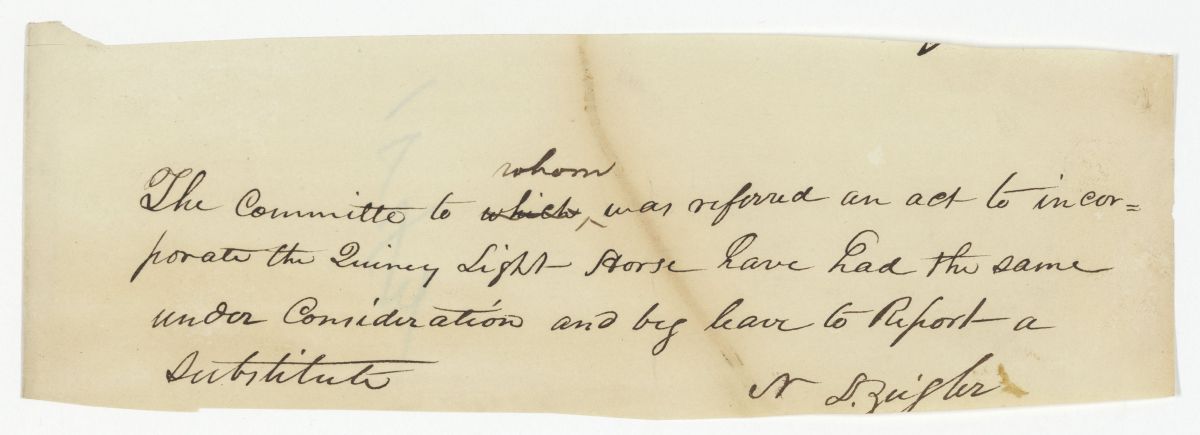 The Committe to ~~which~~ whom was referred an act to incor=
porate the Quincy Light Horse have had the same
under Consideration and beg leave to Report a
Substitute
N S. Zeigler